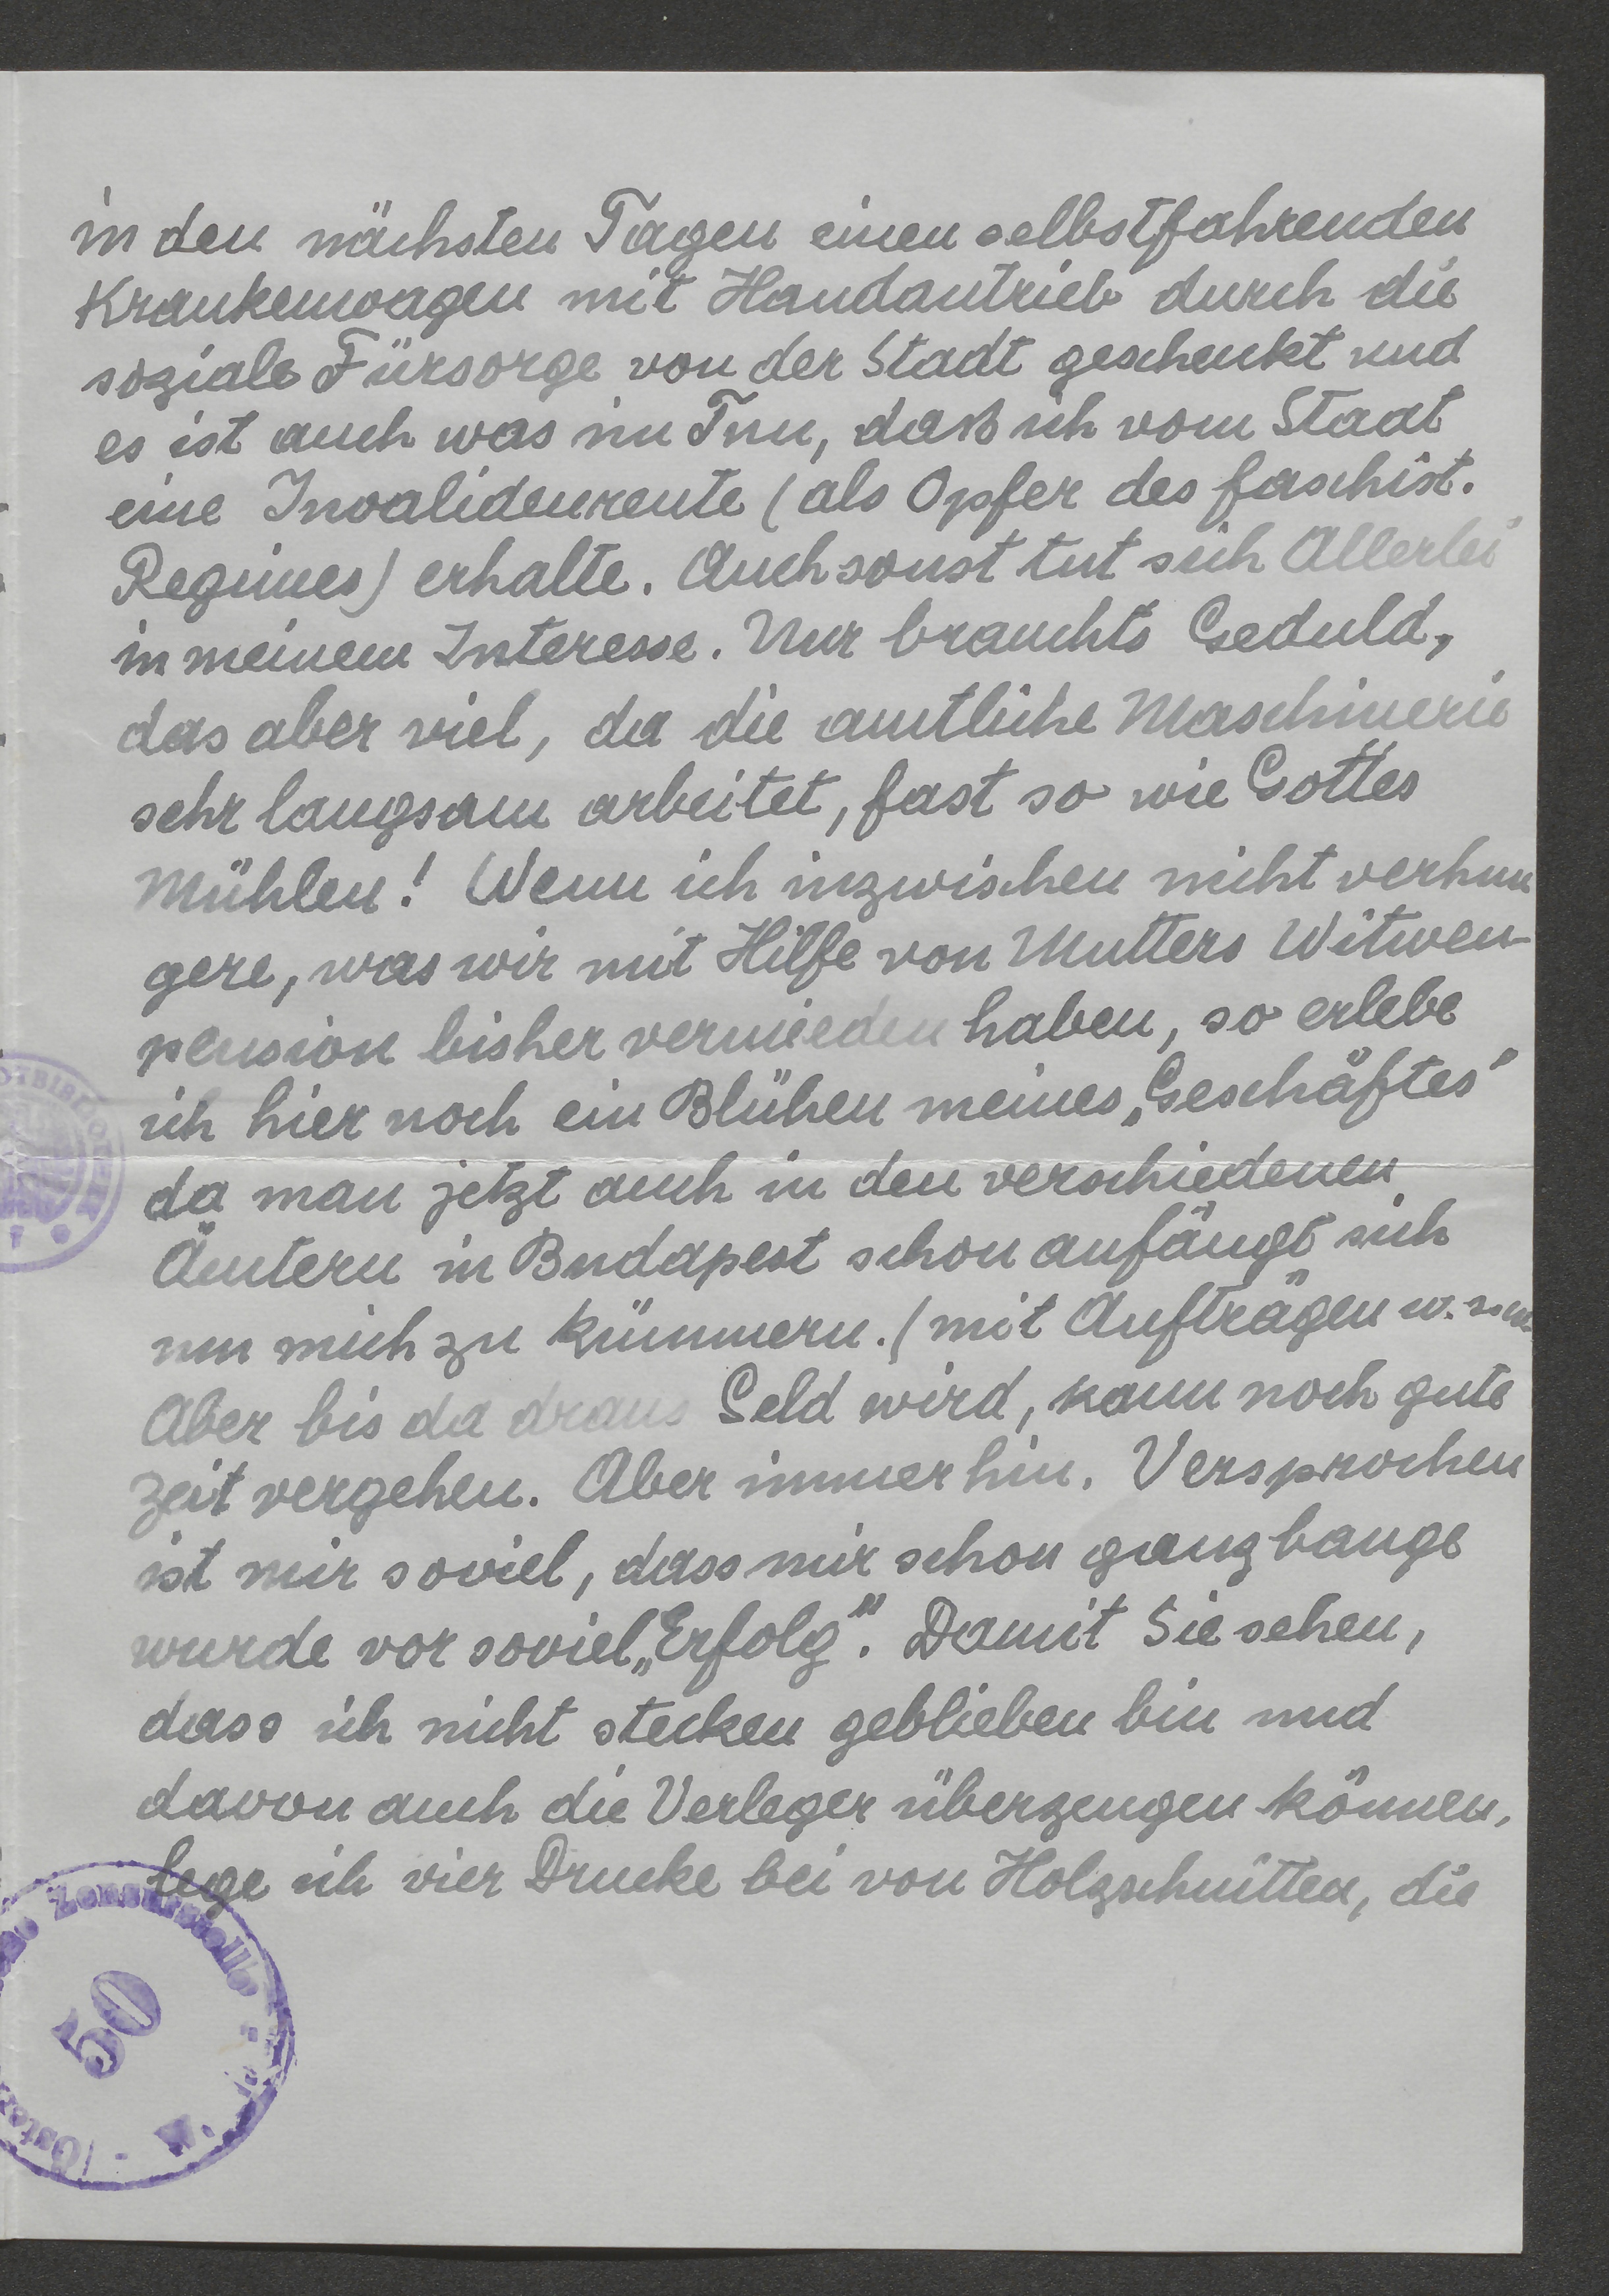 in den nächsten Tagen einen selbstfahrenden
Krankenwagen mit Handantrieb durch die
soziale Fürsorge von der Stadt geschenkt und
es ist auch was im Tun, daß ich vom Staat
eine Invalidenrente (als Opfer des faschist.
Regimes) erhalte. Auch sonst tut sich Allerlei
in meinem Interesse. Nur brauchts Geduld,
das aber viel, da die amtliche Maschinerie
sehr langsam arbeitet, fast so wie Gottes
Mühlen! Wenn ich inzwischen nicht verhun
gere, was wir mit Hilfe von Mutters Witwen-
pension bisher vermieden haben, so erlebe
ich hier noch ein Blühen meines „Geschäftes"
da man jetzt auch in den verschiedenen
Ämtern in Budapest schon anfängt sich
um mich zu kümmern. (mit Aufträgen
Aber bis da draus Geld wird, kann noch gute
Zeit vergehen. Aber immerhin. Versprochen
ist mir soviel, dass mir schon ganz bange
wurde vor soviel „Erfolg". Damit Sie sehen,
dass ich nicht stecken geblieben bin und
davon auch die Verleger überzeugen können,
lege ich vier Drucke bei von Holzschnitten, die
Zensurstelle
50